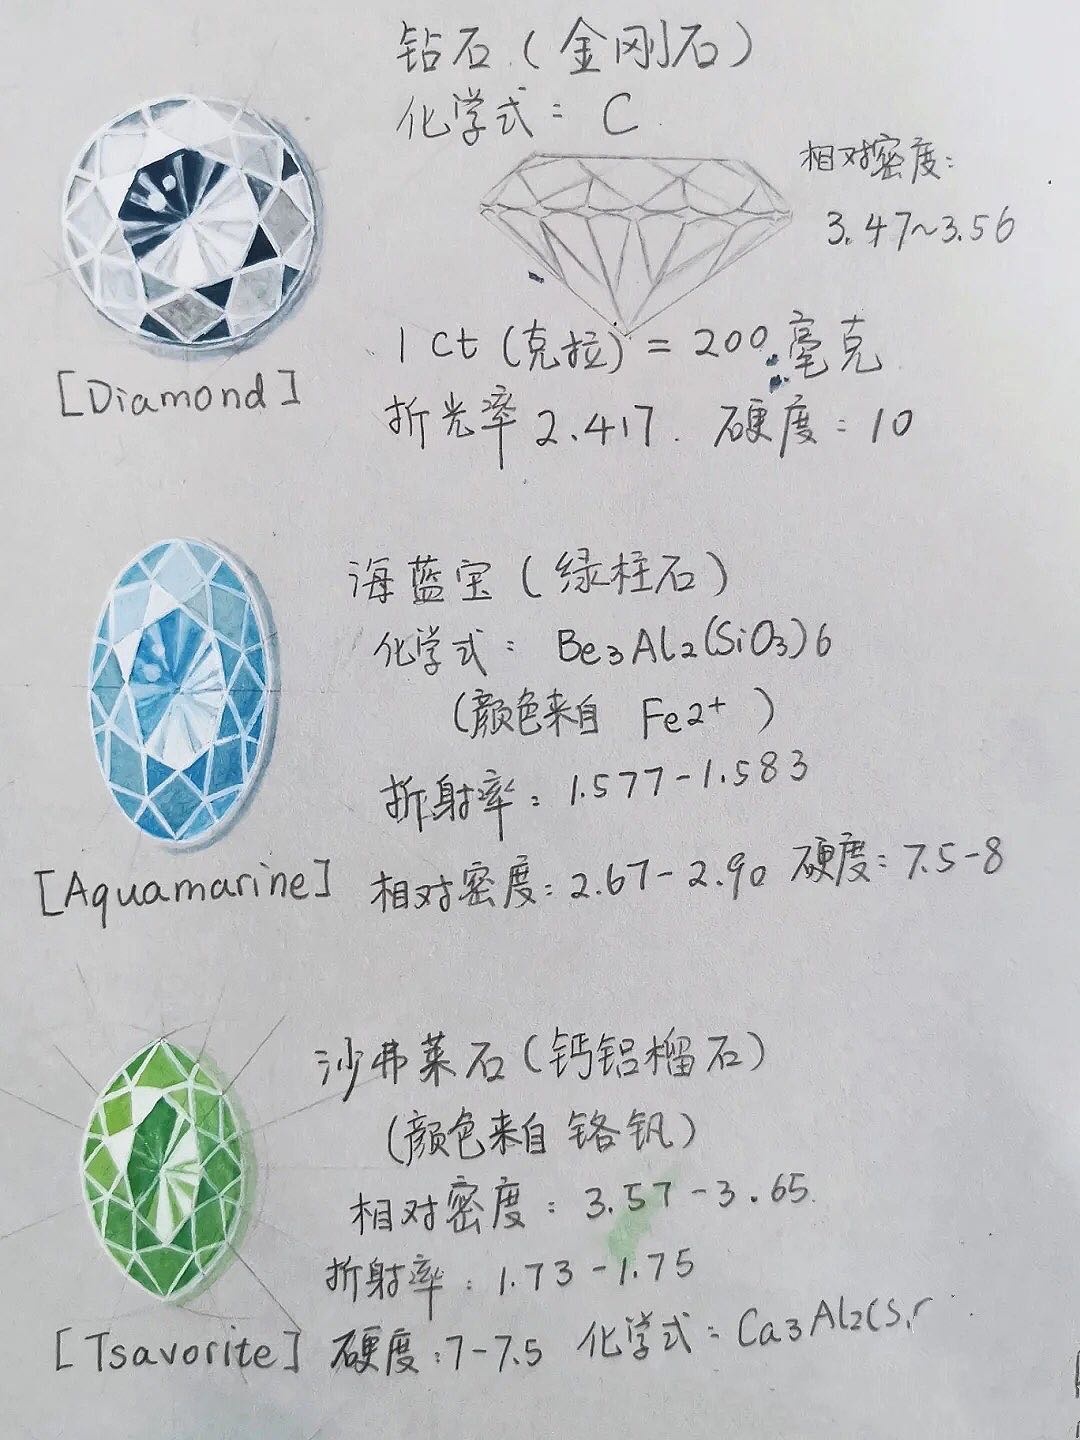 钻石（金刚石）
化学式：C
相对密度：
3.47~3.56
1 Ct（克拉）= 200毫克
[Diamond]
折光率 2.417. 硬度：10
海蓝宝（绿柱石）
化学式：Be3Al2(SiO3)6
（颜色来自 Fe2+）
折射率：1.577-1.583
[Aquamarine] 相对密度：2.67-2.90 硬度：7.5-8
沙弗莱石（钙铝榴石）
（颜色来自铬钒）
相对密度：3.57-3.65
折射率：1.73-1.75
[Tsavorite] 硬度：7-7.5 化学式：Ca3Al2(Si